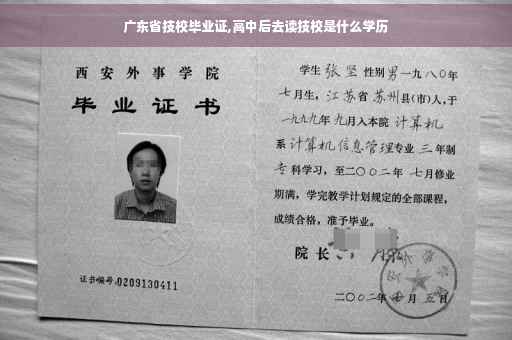 广东省技校毕业证,高中后去读技校是什么学历
西安外事学院
毕业证书
证书编号:0209130411
学生 张坚 性别 男 一九八〇年
七月生, 江苏省 苏州县(市)人,于
一九九九年 九月入本院 计算机
系 计算机信息管理专业 三 年制
专 科学习, 至二〇〇二年 七月修业
期满, 学完教学计划规定的全部课程,
成绩合格, 准予毕业。
院长
二〇〇二年 月 五日